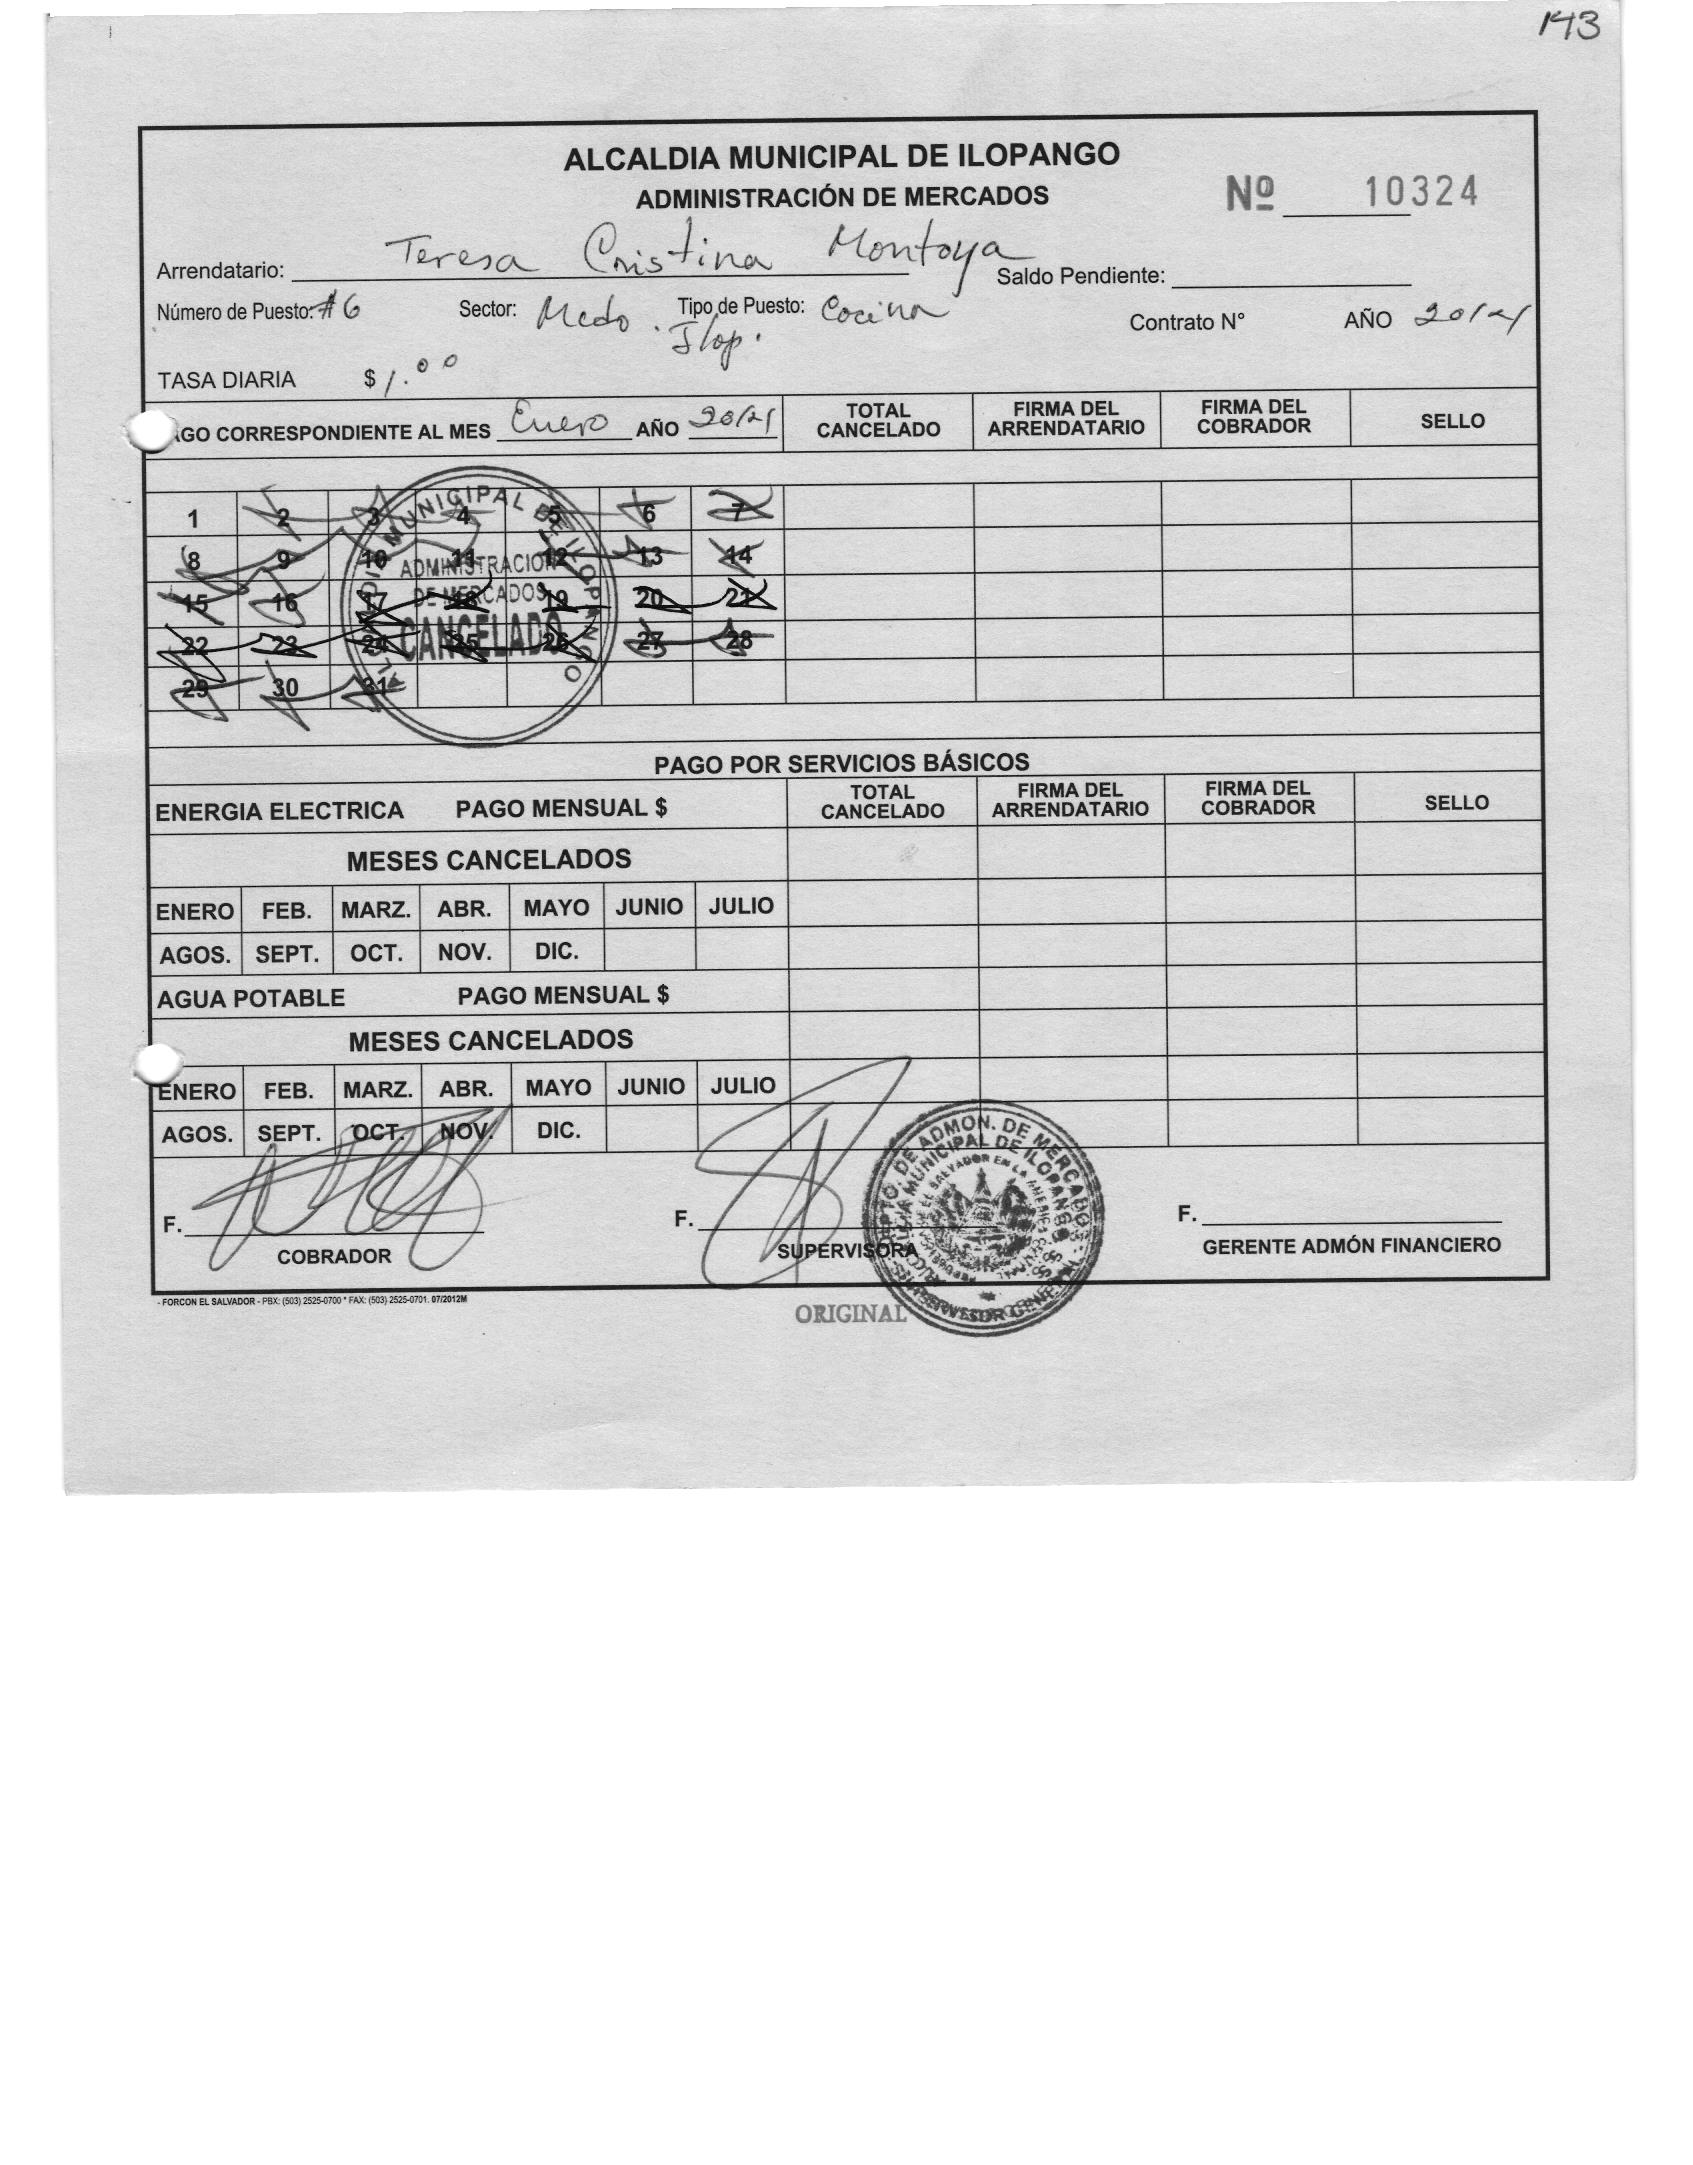 143
ALCALDIA MUNICIPAL DE ILOPANGO
ADMINISTRACIÓN DE MERCADOS
Nº 10324
Arrendatario: Teresa Cristina Montoya Saldo Pendiente:
Número de Puesto: #6 Sector: Mcdo. Ilop. Tipo de Puesto: Cocina Contrato N° AÑO
TASA DIARIA $ 1.00
AGO CORRESPONDIENTE AL MES Enero AÑO TOTAL CANCELADO FIRMA DEL ARRENDATARIO FIRMA DEL COBRADOR SELLO
1 2 3 4 5 6 7
8 9 10 11 12 13 14
15 16 17 18 19 20 21
22 23 24 25 26 27 28
29 30 31
ALCALDIA MUNICIPAL DE ILOPANGO
ADMINISTRACION
DE MERCADOS
CANCELADO
PAGO POR SERVICIOS BÁSICOS
ENERGIA ELECTRICA PAGO MENSUAL $ TOTAL CANCELADO FIRMA DEL ARRENDATARIO FIRMA DEL COBRADOR SELLO
MESES CANCELADOS
ENERO FEB. MARZ. ABR. MAYO JUNIO JULIO
AGOS. SEPT. OCT. NOV. DIC.
AGUA POTABLE PAGO MENSUAL $
MESES CANCELADOS
ENERO FEB. MARZ. ABR. MAYO JUNIO JULIO
AGOS. SEPT. OCT. NOV. DIC.
F. F. F.
COBRADOR SUPERVISORA GERENTE ADMÓN FINANCIERO
DEPTO. DE ADMON. DE MERCADOS
ALCALDIA MUNICIPAL DE ILOPANGO
SUPERVISOR GENERAL
- FORCON EL SALVADOR - PBX: (503) 2525-0700 * FAX: (503) 2525-0701. 07/2012M
ORIGINAL